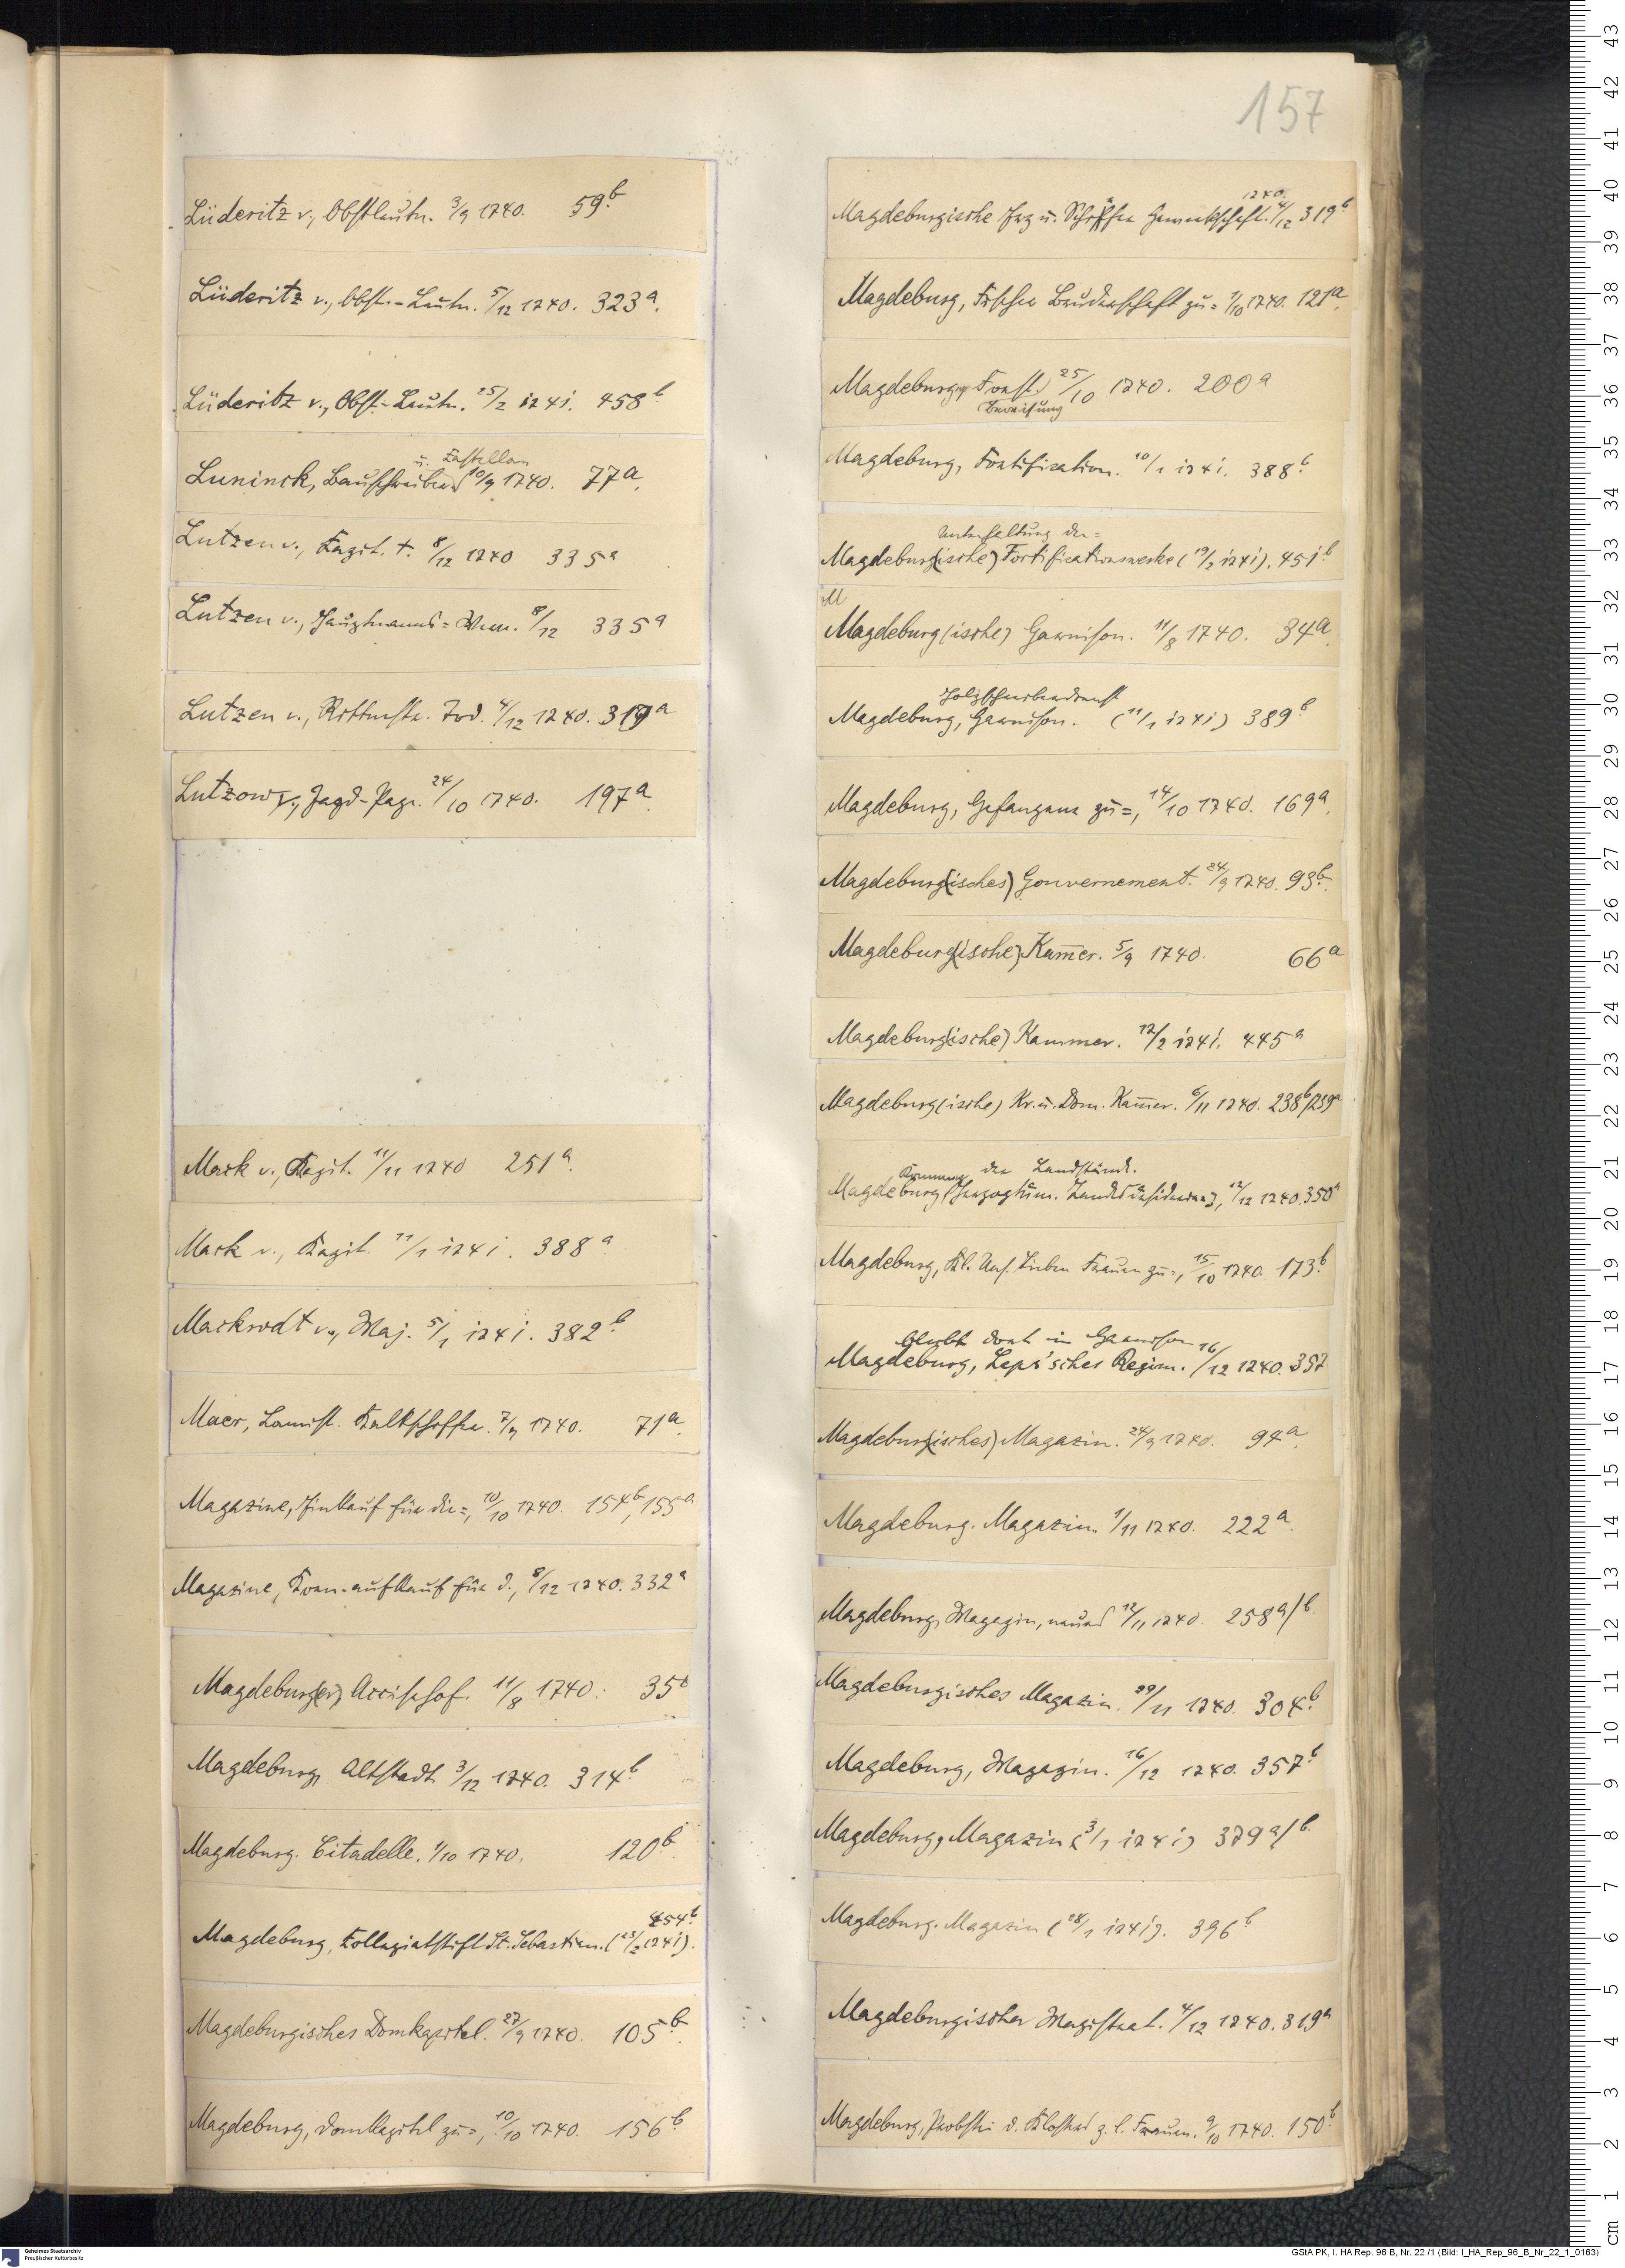 157
Lüderitz v., Obstleutn. 3/9 1740. 59b
Lüderitz v., Obst.-Leutn. 5/12 1740. 323a.
Lüderitz v., Obst.-Leutn. 25/2 1741. 458b
u. Castellan
Luninck, Bauschreiber 10/9 1740. 77a.
Lutzen v., Capit. †. 8/12 1740 335a
Lutzen v., Hauptmanns=Wwe. 8/12 335a
Lutzen v., Rittmstr. Tod. 4/12 1740. 319a
Lutzow v., Jagd-Page. 24/10 1740. 197a.
Mack v., Capit. 11/11 1740 251a.
Mack v., Capit. 11/1 1741. 388a
Mackrodt v., Maj. 5/1 1741. 382b
Maer, Kalkschiffer. 7/9 1740. 71a.
Magazine, Einkauf für die=, 10/10 1740. 154b, 155a
Magazine, Korn-aufkauf für d., 8/12 1740. 332a
Magdeburg(er) Accisehof. 11/8 1740. 35b
Magdeburg, Altstadt 3/12 1740. 314b.
Magdeburg. Citadelle. 1/10 1740. 120b.
454b.
Magdeburg, Collegiatstift St. Sebastian. (23/2 1741).
Magdeburgisches Domkapitel. 27/9 1740. 105b.
Magdeburg, Domkapitel zu=, 10/10 1740. 156b.
1740.
Magdeburgische u. Schöffen 4/12 319b
Magdeburg, Fischer Brüderschaft zu= 1/10 1740. 121a.
Magdeburg, Forst. 25/10 1740. 200a
Bereisung
Magdeburg, Fortification. 10/1 1741. 388b.
Unterhaltung der=
Magdeburg(ische) Fortificationswerke (19/2 1741). 451b
M
Magdeburg(ische) Garnison. 11/8 1740. 34a.
Magdeburg, Garnison. (11/1 1741) 389b
Magdeburg, Gefangene zu=, 14/10 1740. 169a.
Magdeburg(isches) Gouvernement. 24/9 1740. 93b.
Magdeburg(ische) Kam̅er. 5/9 1740. 66a
Magdeburg(ische) Kammer. 12/2 1741. 445a
Magdeburg(ische) Kr. u. Dom. Kam̅er. 6/11 1740. 238b/239a
der Landstände.
Magdeburg, Herzogtum. 12/12 1740. 350a
Magdeburg, Kl. Uns. Lieben Frauen zu=, 15/10 1740. 173b.
bleibt dort in Garnison
Magdeburg, Leps'sches Regim. 16/12 1740. 357
Magdeburg(isches) Magazin. 24/9 1740. 94a.
Magdeburg. Magazin. 1/11 1740. 222a.
Magdeburg, Magazin, neues 12/11 1740. 258a/b.
Magdeburgisches Magazin. 29/11 1740. 304b.
Magdeburg, Magazin. 16/12 1740. 357b
Magdeburg, Magazin (3/1 1741) 379a/b.
Magdeburg. Magazin (18/1 1741). 396b
Magdeburgischer Magistrat. 4/12 1740. 319a
Magdeburg, Probstei d. Klosters z. l. Frauen. 9/10 1740. 150b.
Geheimes Staatsarchiv
Preußischer Kulturbesitz
GStA PK, I. HA Rep. 96 B, Nr. 22 /1 (Bild: I_HA_Rep_96_B_Nr_22_1_0163)